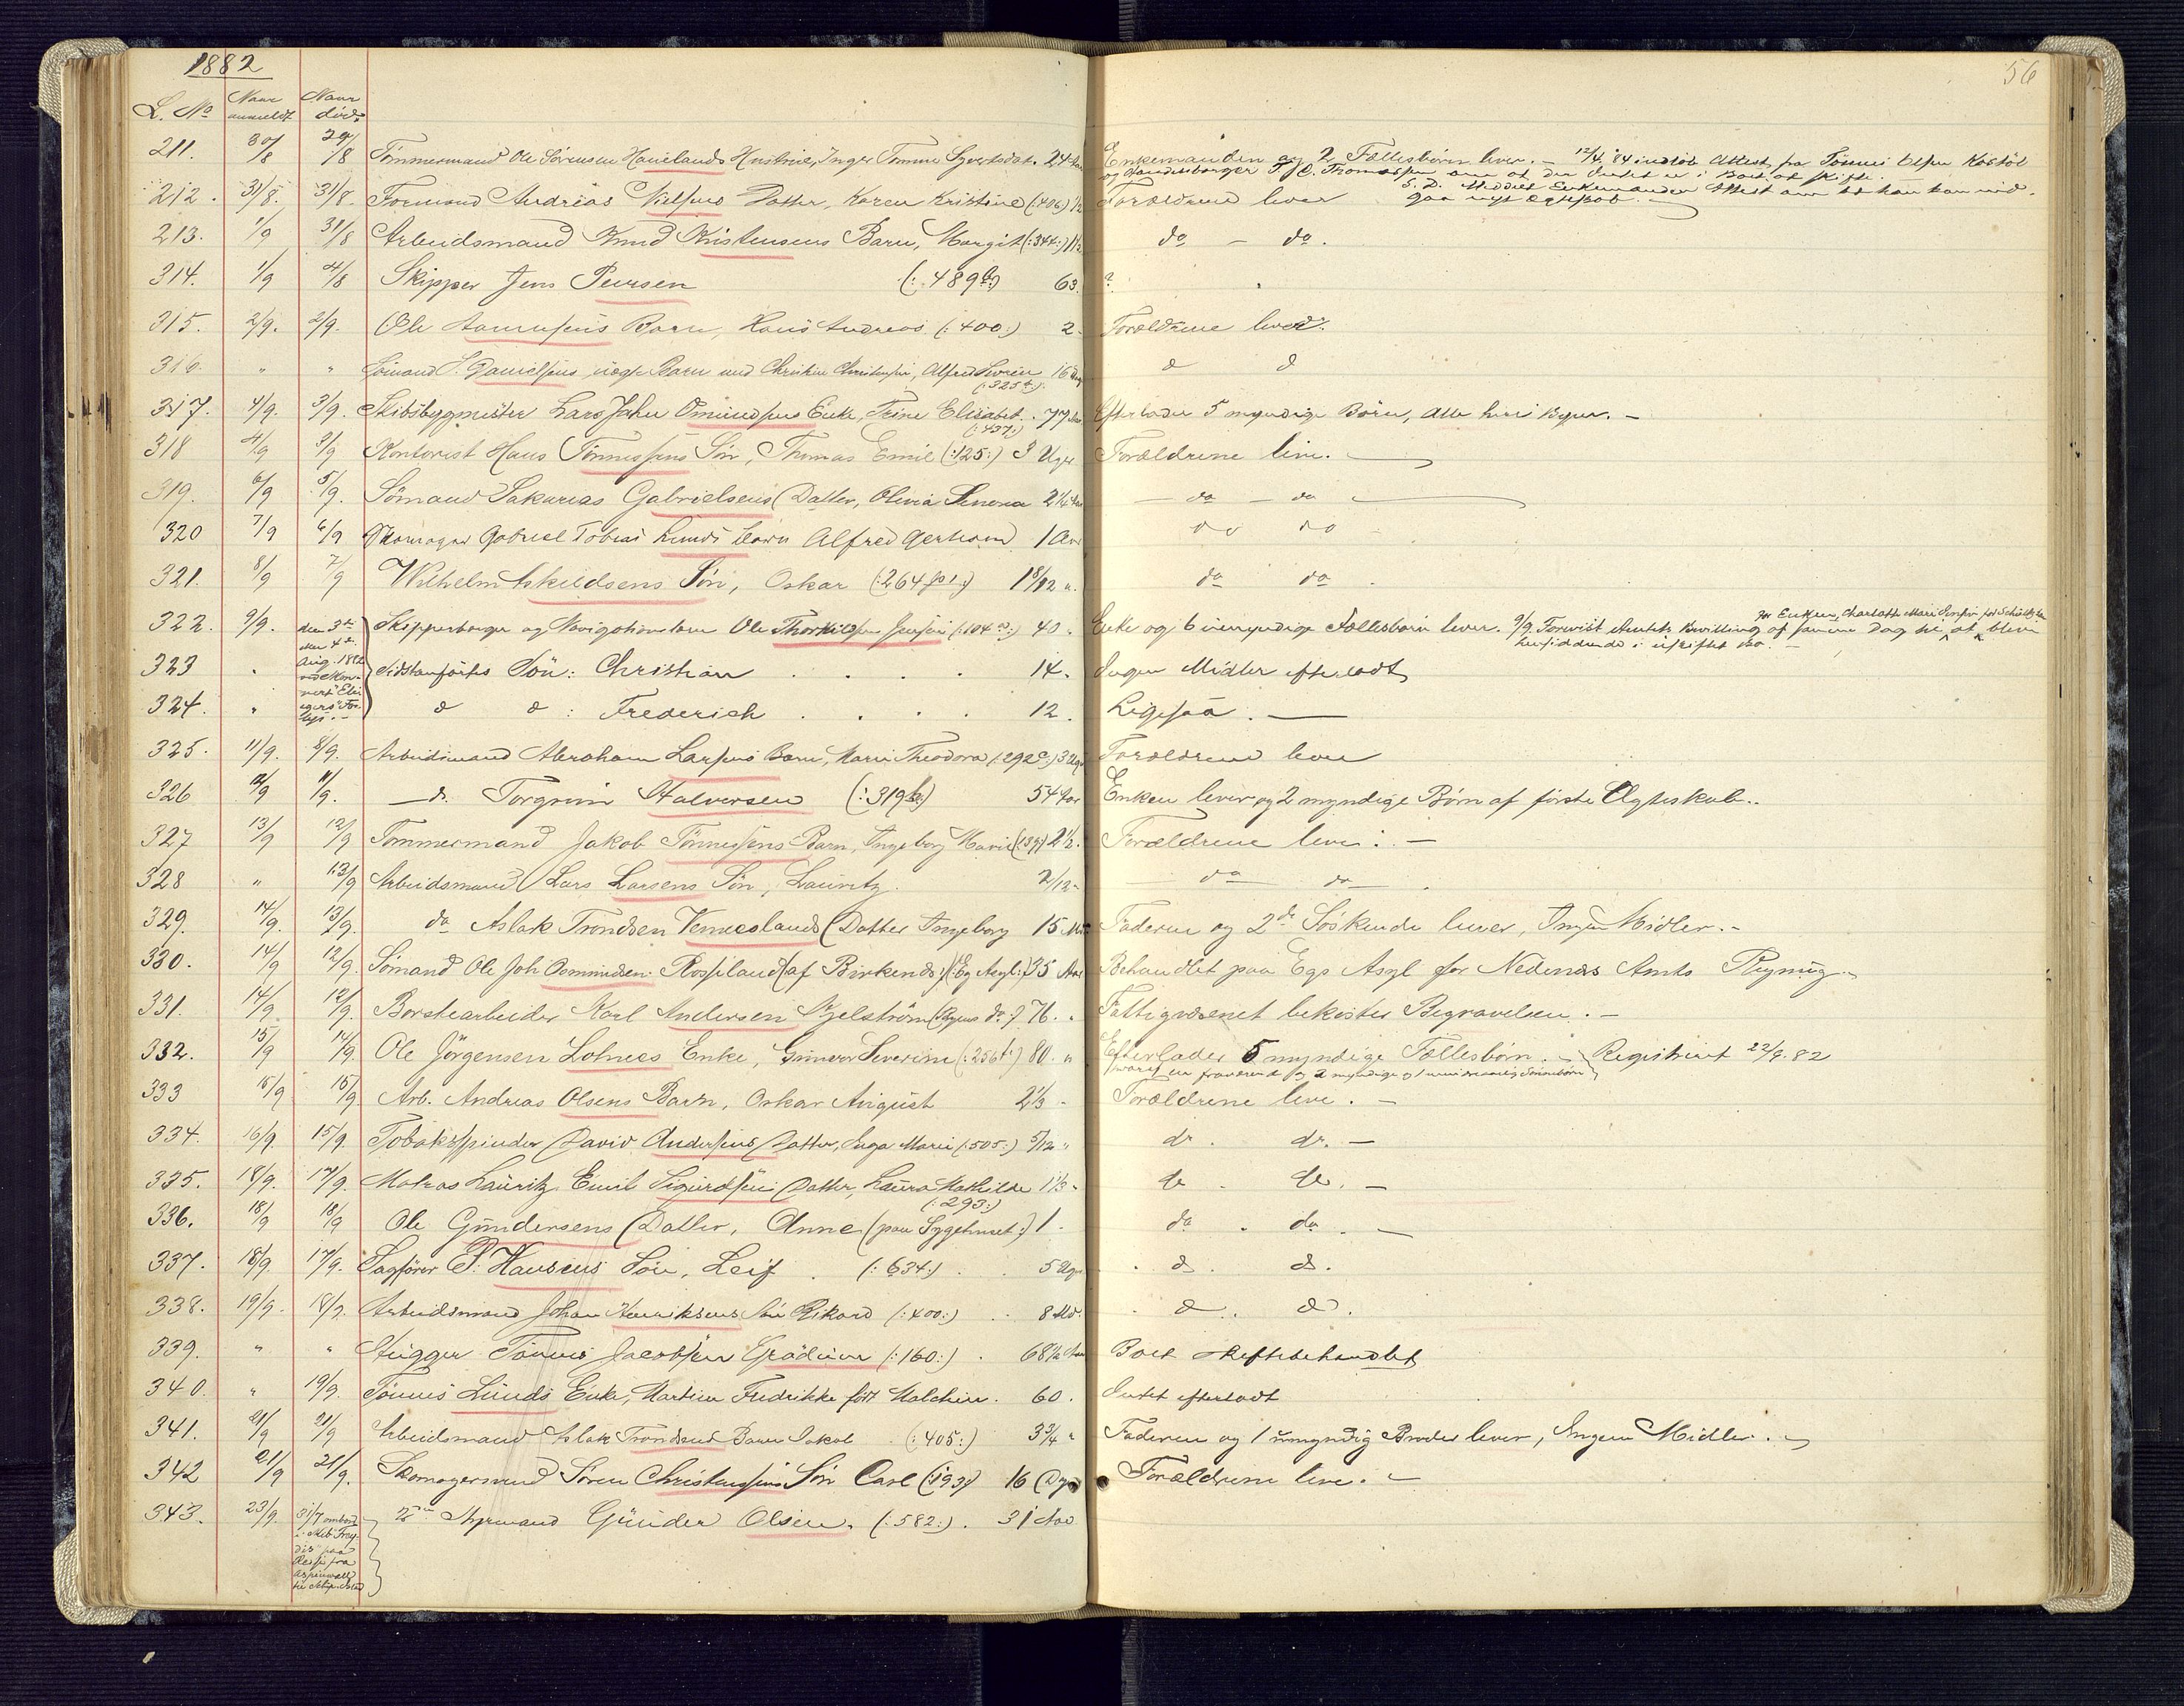 1882
56
L. No Naar anmeldt Naar død
211. 30/8 29/8 Tømmermand Ole Sørensen Hanelands Hustrue, Inger Tomine Syvertsdat. 24 Aar Enkemanden og 2 Fællesbørn lever. – 12/4 84 indløb Attest fra Tønnes Olsen Kostøl
og Handelsborger T. C. Thomassen om at der Intet er i Boet at skifte.
S. D. meddelt Enkemanden Attest om at han kan ind-
gaa nyt Ægteskab. –
212. 31/8. 31/8. Formand Andreas Nielsens Datter, Karen Kristine (:406) 1/2 Forældrene lever
213. 1/9 31/8 Arbeidsmand Knud Kristensens Barn, Margit (:344:) 1 1/2 do – do.
314. 1/9 4/8 Skipper Jens Peersen (:489 b:) 63. ?
315. 2/9. 2/9. Ole Aanensens Barn, Hans Andreas (:400:) 2. Forældrene lever.
316. " " Sømand S. Danielsens uægte Barn med Christine Christensen, Alfred Severin 16 Dag d d
(:325 b:)
317. 4/9. 3/9. Skibsbygmester Lars Jahn Omundsens Enke, Trine Elisabet. 77 Aar Efterlader 5 myndige Børn, alle heri Byen. –
(:437:)
318 4/9 3/9 Kontorist Hans Tønnesens Søn, Thomas Emil (:125:) 3 Uger Forældrene leve.
319. 6/9 5/9. Sømand Sakarias Gabrielsens Datter, Olivia Lenora 2 1/4 Aar – do – do
320 7/9 6/9 Skomager Gabriel Tobias Lunds Barn Alfred Gerhard 1 Aar do do
321. 8/9 7/9 Wilhelm Askildsens Søn, Oskar (:264 1:) 1 8/12 ". do do.
322. 9/9. den 3die eller 4de Aug. 1882 ved Skonnert Eliezers Forlis. – Skipperborger og Navigationslærer Ole Thorkildsen Jensen (:104 a:) 40. Enke og 6 umyndige Fællesbørn lever. 9/9 Forevist Amtets Bevilling af samme Dag til at blive
for Enken, Charlotte Marie Jensen født Scholtz
hensiddende i uskiftet Bo. –
323 " Sidstanførtes Søn: Christian . . . . 14. Ingen Midler efterladt
324. " d d: Frederich . . . . 12. Ligesaa. –
325. 11/9. 8/9. Arbeidsmand Abraham Larsens Barn, Marie Theodora (:292 c:) 3 Uger Forældrene lever
326 12/9 11/9. – do. Torgrim Halvorsen (:319 b:) 54 Aar Enken lever og 2 myndige Børn af første Ægteskab..
327 13/9 12/9 Tømmermand Jakob Tønnesens Barn, Ingeborg Marie (:139) 2 1/2. Forældrene leve: –
328 " 13/9 Arbeidsmand Lars Larsens Søn, Lauritz. 2/12 – – do do – .
329. 14/9. 13/9. do Aslak Trondsen Venneslands Datter Ingeborg 15 Mdr Faderen og 2de Søskende lever, Ingen Midler. –
330. 14/9 12/9. Sømand Ole Joh Osmundsen Rossland (af Birkends:) (:Eg Asyl:) 35 Aar Behandlet paa Egs Asyl for Nedenæs Amts Regning.
331. 14/9 12/9. Børstearbeider Karl Andersen Kjelstrøm (Byens do:) 76. " Fattigvæsenet bekoster Begravelsen. –
332. 15/9 14/9. Ole Jørgensen Lohnes Enke, Gunvor Severine (:256 b:) 80. " Efterlader 5 myndige Fællesbørn. – Registreret 22/9. 82
hvoraf en fraværende og 2 myndige og 1 umyndig Sønnebørn
333 15/9 15/9 Arb. Andreas Olsens Barn, Oskar August 2 1/3 – Forældrene leve. –
334. 16/9. 15/9. Tobakspinder David Andersens Datter, Inga Marie (:505:) 5/12 " do. do. –
335. 18/9. 17/9. Matros Lauritz Emil Sigurdsens Datter, Laura Mathilde 1 1/3 " do – do. –
(:293:)
336. 18/9 18/9 Ole Gundersens Datter, Anne (paa Sygehuset:) 1. do. do. –
337. 18/9. 17/9. Sagfører P. Hansens Søn, Leif . (:634:) . . 5 Uger . d. d.
338. 19/9. 18/9. Arbeidsmand Johan Henriksens Søn Rikard (:400:) .. 8 Md. . d. d.
339. " " Hugger Tønnes Jacobsen Grødum (:160:) . 68 1/2 Aar Boet skiftebehandlet
340. " 19/9. Tønnes Lunds Enke, Martine Fredrikke født Malchin. 60. Intet efterladt
341. 21/9 21/9 Arbeidsmand Aslak Trondsens Barn Jakob . (:405:) 3 3/4 " Faderen og 1 umyndig Broder lever, Ingen Midler. –
342 21/9 21/9. Skomagersvend Søren Christensens Søn Carl (:193) 16 Dage Forældrene leve. –
343. 23/9. 31/7 ombord i Skib Freydis paa Reise fra Aspinwall til Ship Island Styrmand Gunder Olsen. (:582:). 31 Aar